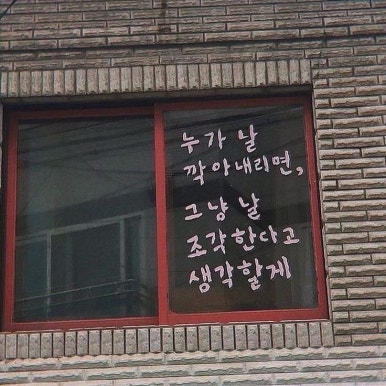 누가 날
깍아내리면,
그냥 날
조각한다고
생각할게